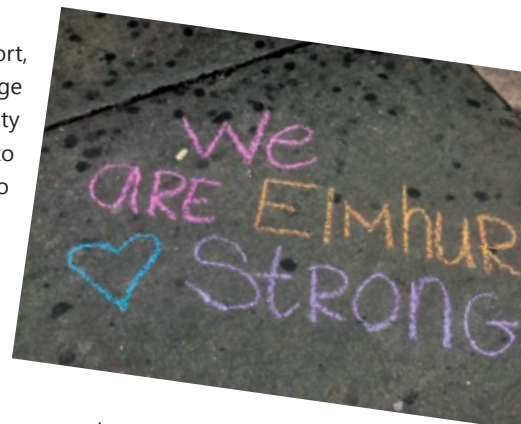 ort,
ge
ty
to
o
We
ARE ElmhuR
StRONG